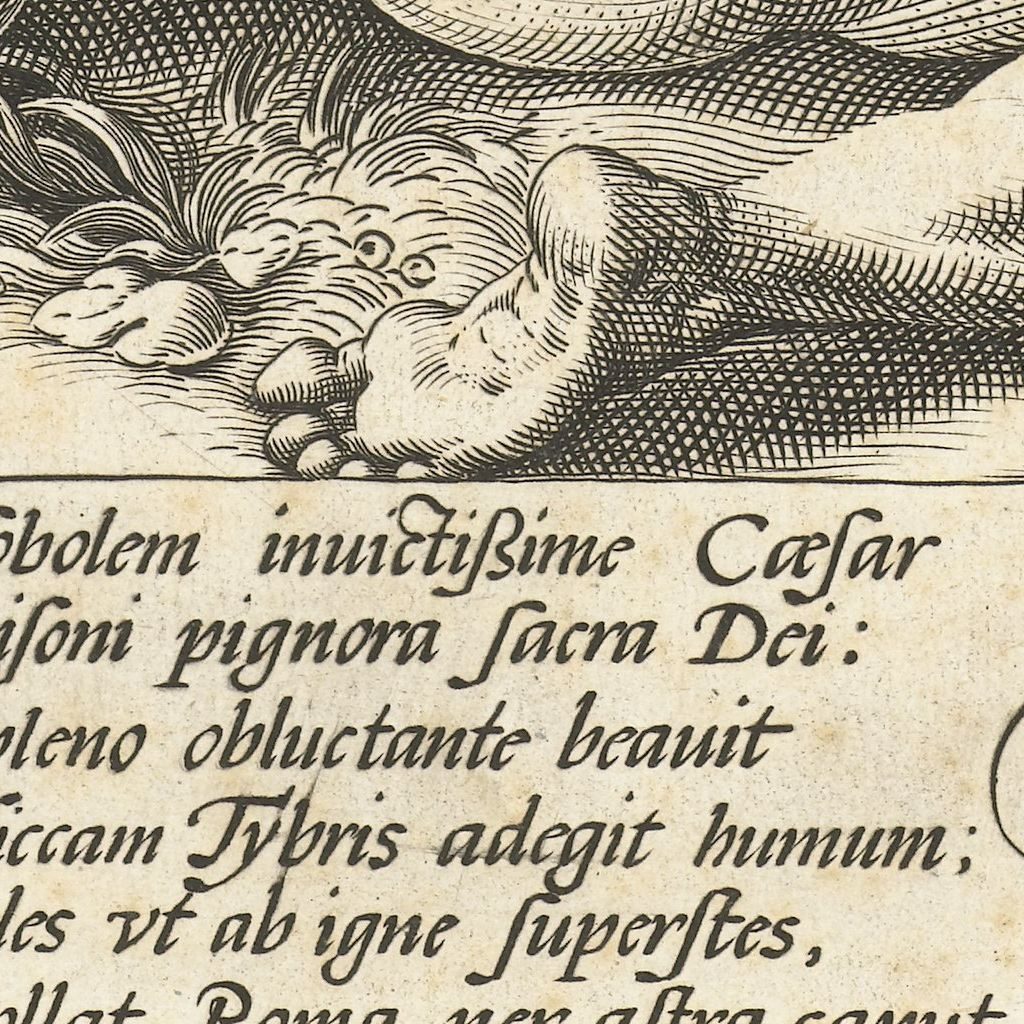 obolem inuictißime Cæſar
iſoni pignora ſacra Dei:
pleno obluctante beauit
iccam Tybris adegit humum;
les vt ab igne ſuperſtes,
ollat Roma per aſtra caput